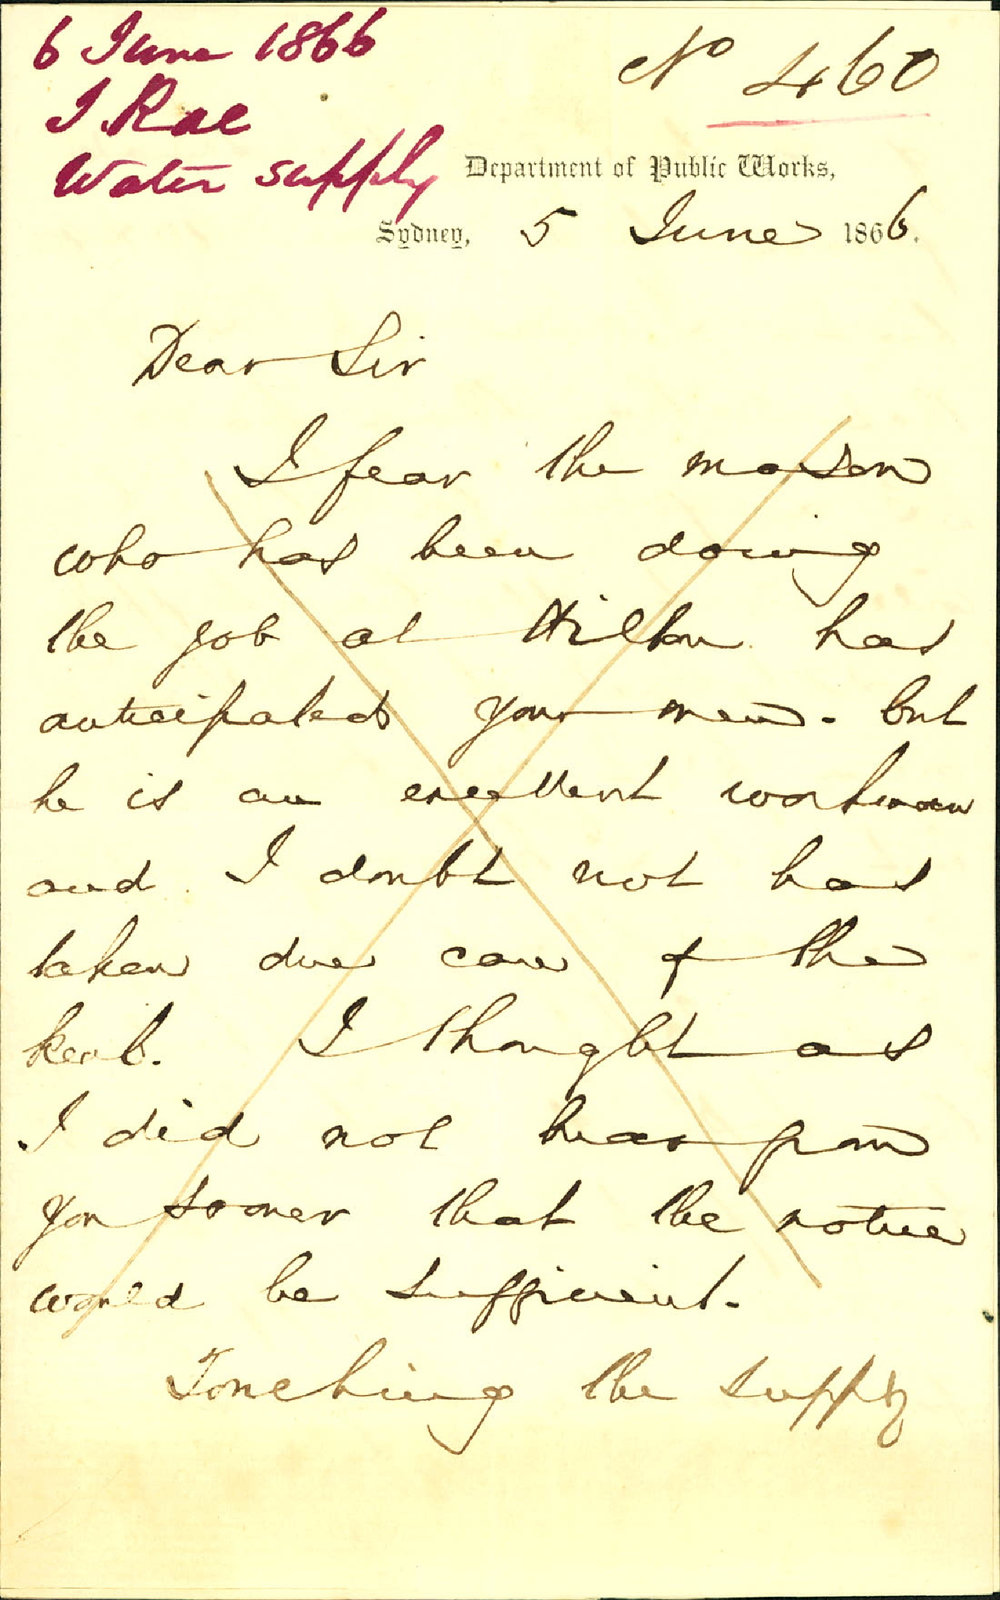 6 June 1866
J Rae
Water supply
No 460
Department of Public Works,
Sydney, 5 June 1866.
Dear Sir
I fear the mason
who has been doing
the job at Hilton has
anticipated your men. but
he is an excellent workman
and I doubt not has
taken due care of the
kerb. I thought as
I did not hear from
you sooner that the notice
would be sufficient.
Touching the supply